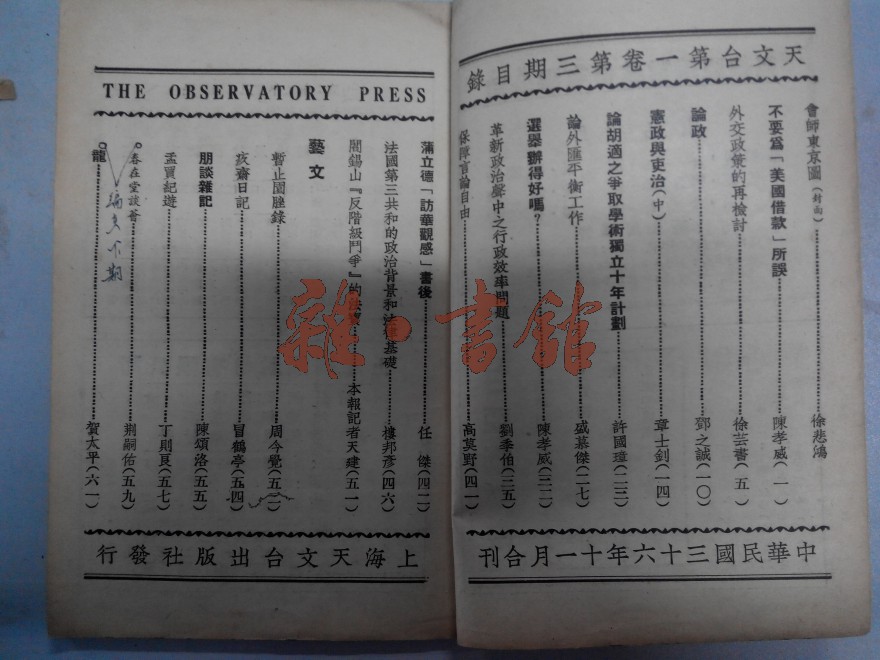 天文台第一卷第三期目錄
會師東京圖(封面)……徐悲鴻
不要爲「美國借款」所誤……陳孝威(一)
外交政策的再檢討……徐芸書(五)
論政……鄧之誠(一〇)
憲政與吏治(中)……章士釗(一四)
論胡適之爭取學術獨立十年計劃……許國璋(二三)
論外匯平衡工作……盛慕傑(二七)
選舉辦得好嗎?……陳孝威(三二)
革新政治聲中之行政效率問題……劉季伯(三五)
保障言論自由……高莫野(四一)
中華民國三十六年十一月合刊
THE OBSERVATORY PRESS
蒲立德「訪華觀感」書後……任 傑(四二)
法國第三共和的政治背景和法律基礎……樓邦彥(四六)
閻錫山『反階級鬥爭』的……本報記者天建(五一)
藝文
暫止閣脞錄……周今覺(五二)
疚齋日記……冒鶴亭(五四)
朋談雜記……陳頌洛(五五)
孟買記遊……丁則良(五七)
春在堂談薈……荆嗣佑(五九)
龍……賀太平(六一)
編多下期
上海天文台出版社發行
雜·書館